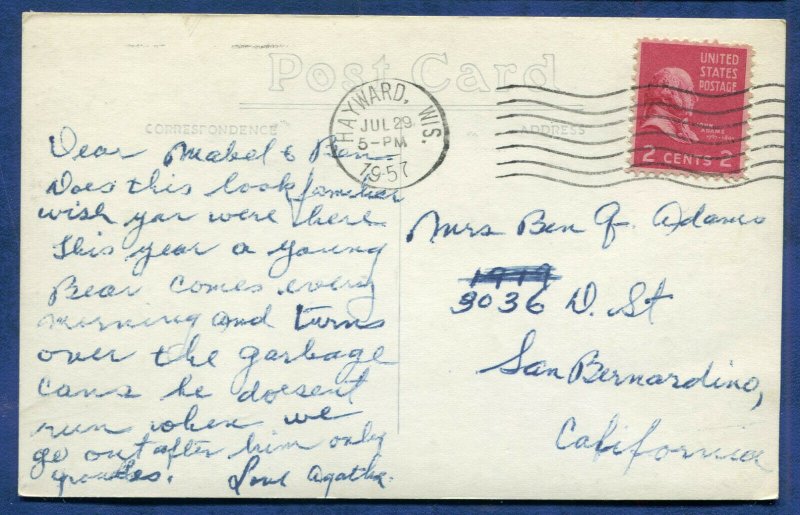 Post Card
CORRESPONDENCE
ADDRESS
HAYWARD, WIS.
JUL 29
5-PM
1957
UNITED
STATES
POSTAGE
JOHN
ADAMS
2 CENTS 2
Dear Mabel & Ben
Does this look familiar
wish you were here
This year a young
Bear comes every
morning and turns
over the garbage
cans he doesent
run when we
go out after him only
growles. Love Agatha
Mrs Ben J. Adams
1919
3036 D. St
San Bernardino,
California